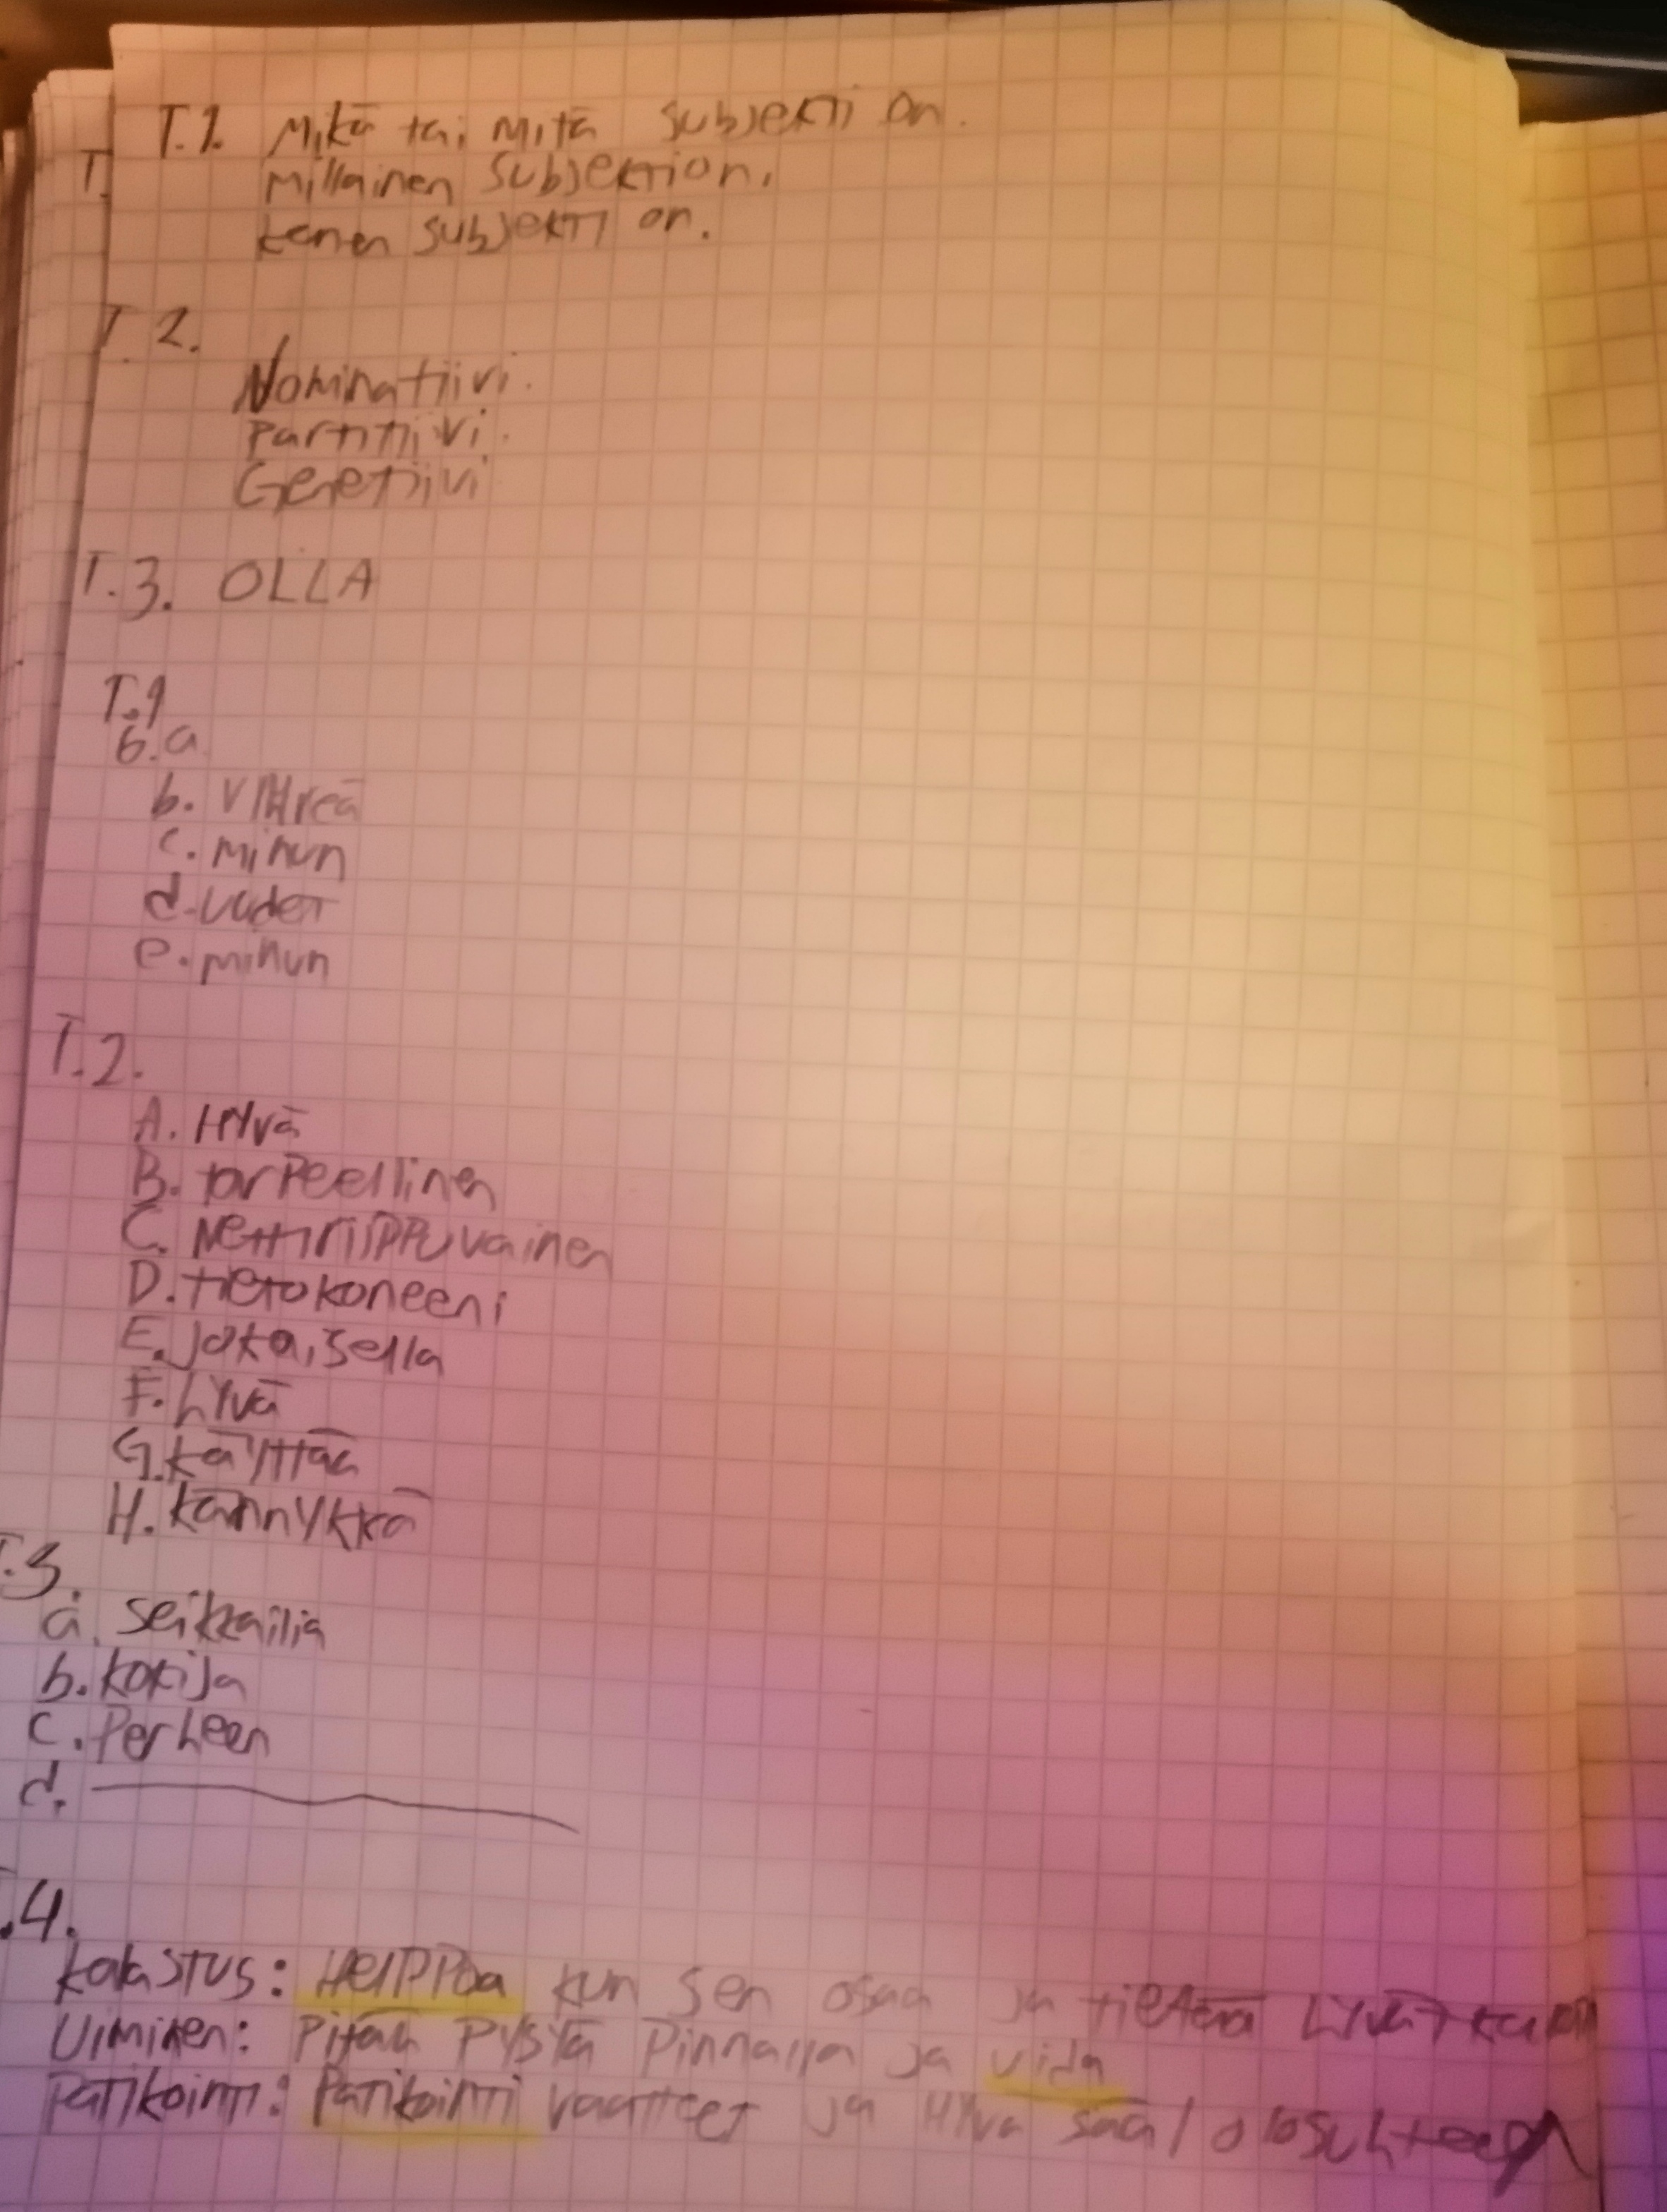 T.1. Mikä tai mitä subjekti on.
T. Millainen subjekti on.
kenen subjekti on.
T. 2.
Nominatiivi.
Partitiivi.
Genetiivi
T.3. OLLA
T.1
6.a
b. VIHreä
c. minun
d. uudet
e. minun
T.2.
A. HYvä
B. tarpeellinen
C. Nettiriippuvainen
D. tietokoneeni
E. jokaisella
F. hyvä
G. käyttää
H. kännykkä
T.3.
a. seikkailia
b. kokija
c. Perheen
d.
.4.
kalastus: HelPPoa kun sen osaa ja tietää hyvät
Uiminen: Pitää Pysyä Pinnalla ja uida
Patikointi: Patikointi vaatteet ja HYvä sää/olosuhteet